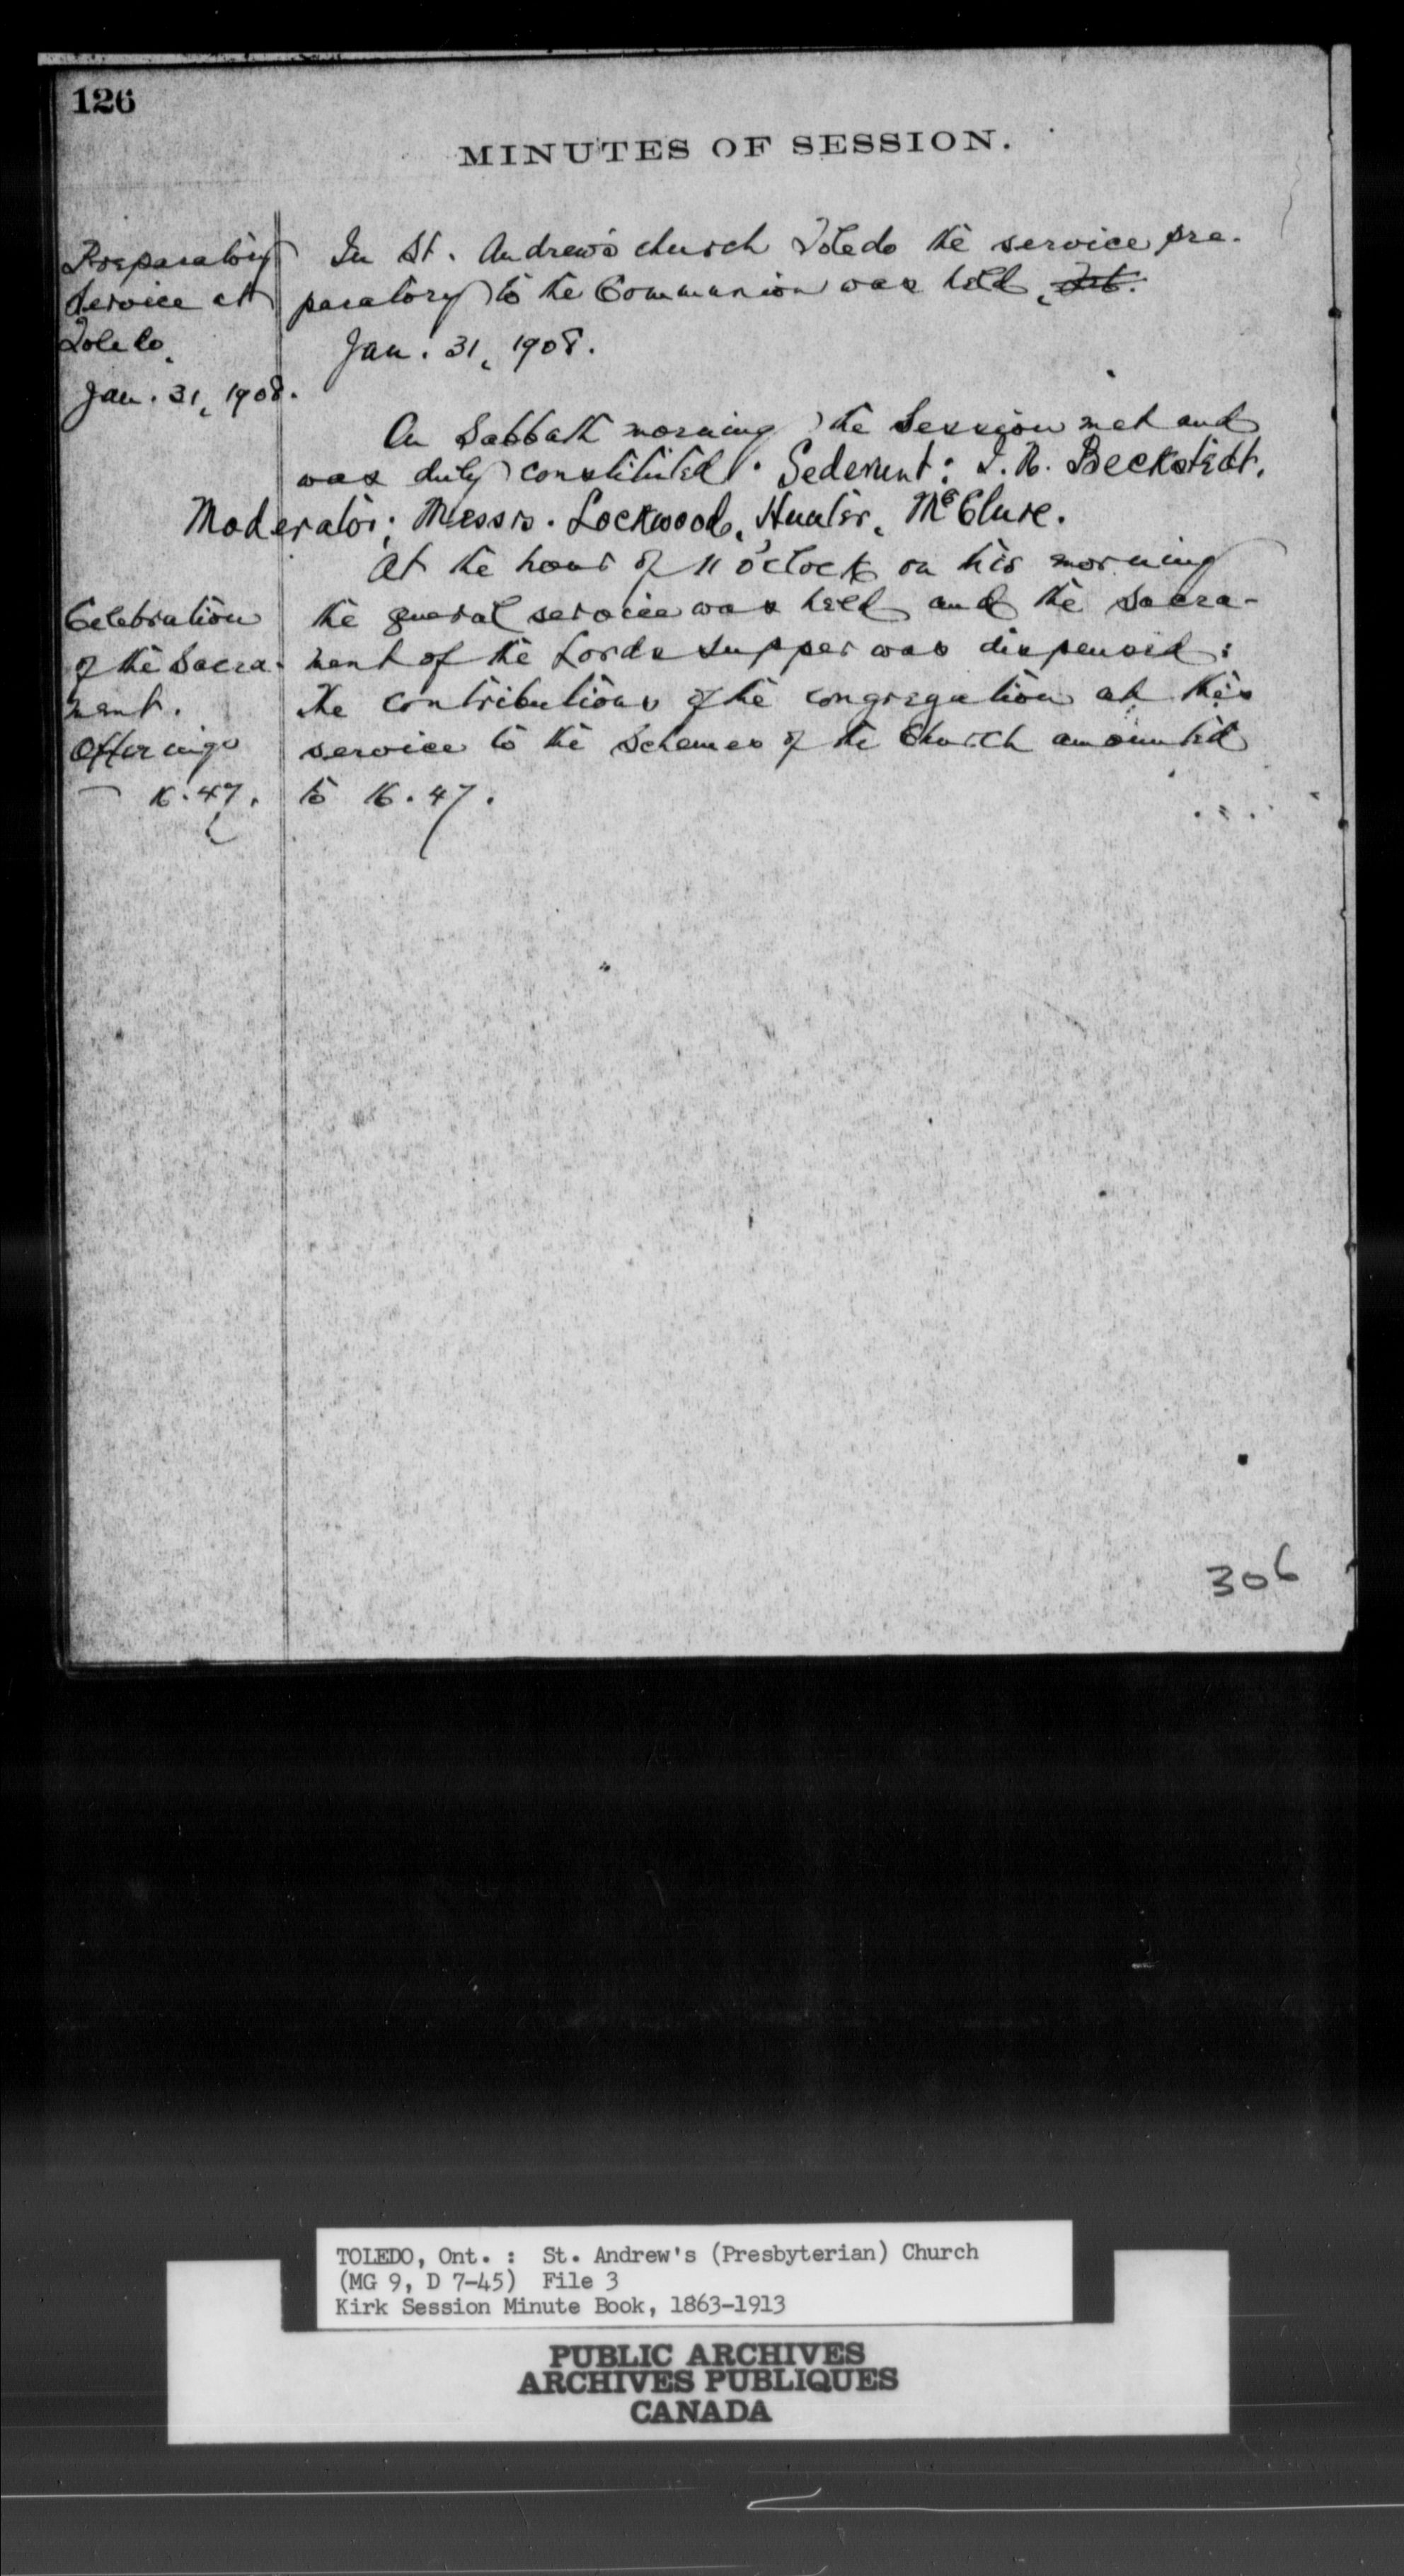 126
MINUTES OF SESSION.
Preparatory
Service at
Toledo.
Jan. 31, 1908.
In St. Andrew's church Toledo the service pre-
paratory to the Communion was held,
Jan. 31, 1908.
On Sabbath morning the Session met and
was duly constituted. Sederunt: I. N. Beckstedt,
Moderator; Messrs. Lockwood, Hunter, McClure.
At the hour of 11 o'clock on this morning
Celebration
of the Sacra-
ment.
Offerings
— 16.47.
the general service was held and the Sacra-
ment of the Lords Supper was dispensed:
The contributions of the congregation at this
service to the Schemes of the Church amounted
to 16.47.
306
TOLEDO, Ont. : St. Andrew's (Presbyterian) Church
(MG 9, D 7-45) File 3
Kirk Session Minute Book, 1863-1913
PUBLIC ARCHIVES
ARCHIVES PUBLIQUES
CANADA